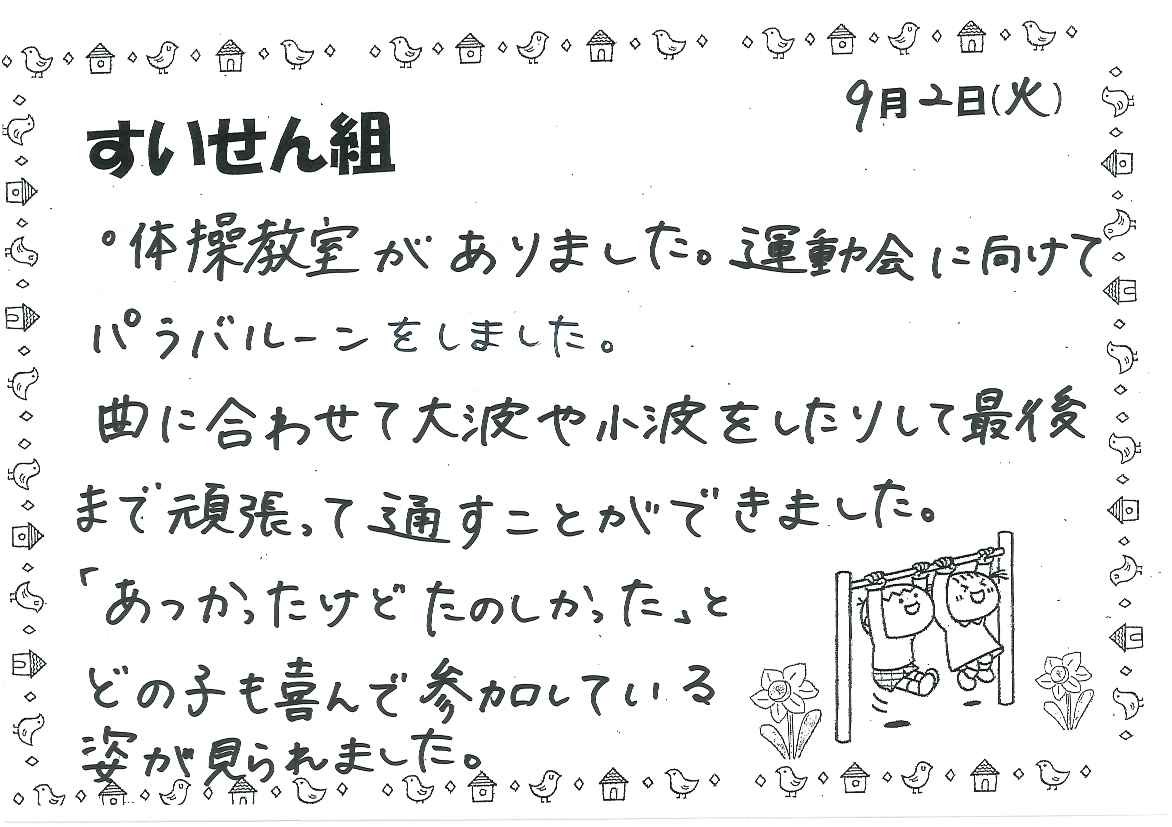 9月2日(火)
すいせん組
°体操教室がありました。運動会に向けて
パラバルーンをしました。
曲に合わせて大波や小波をしたりして最後
まで頑張って通すことができました。
「あつかったけどたのしかった」と
どの子も喜んで参加している
姿が見られました。